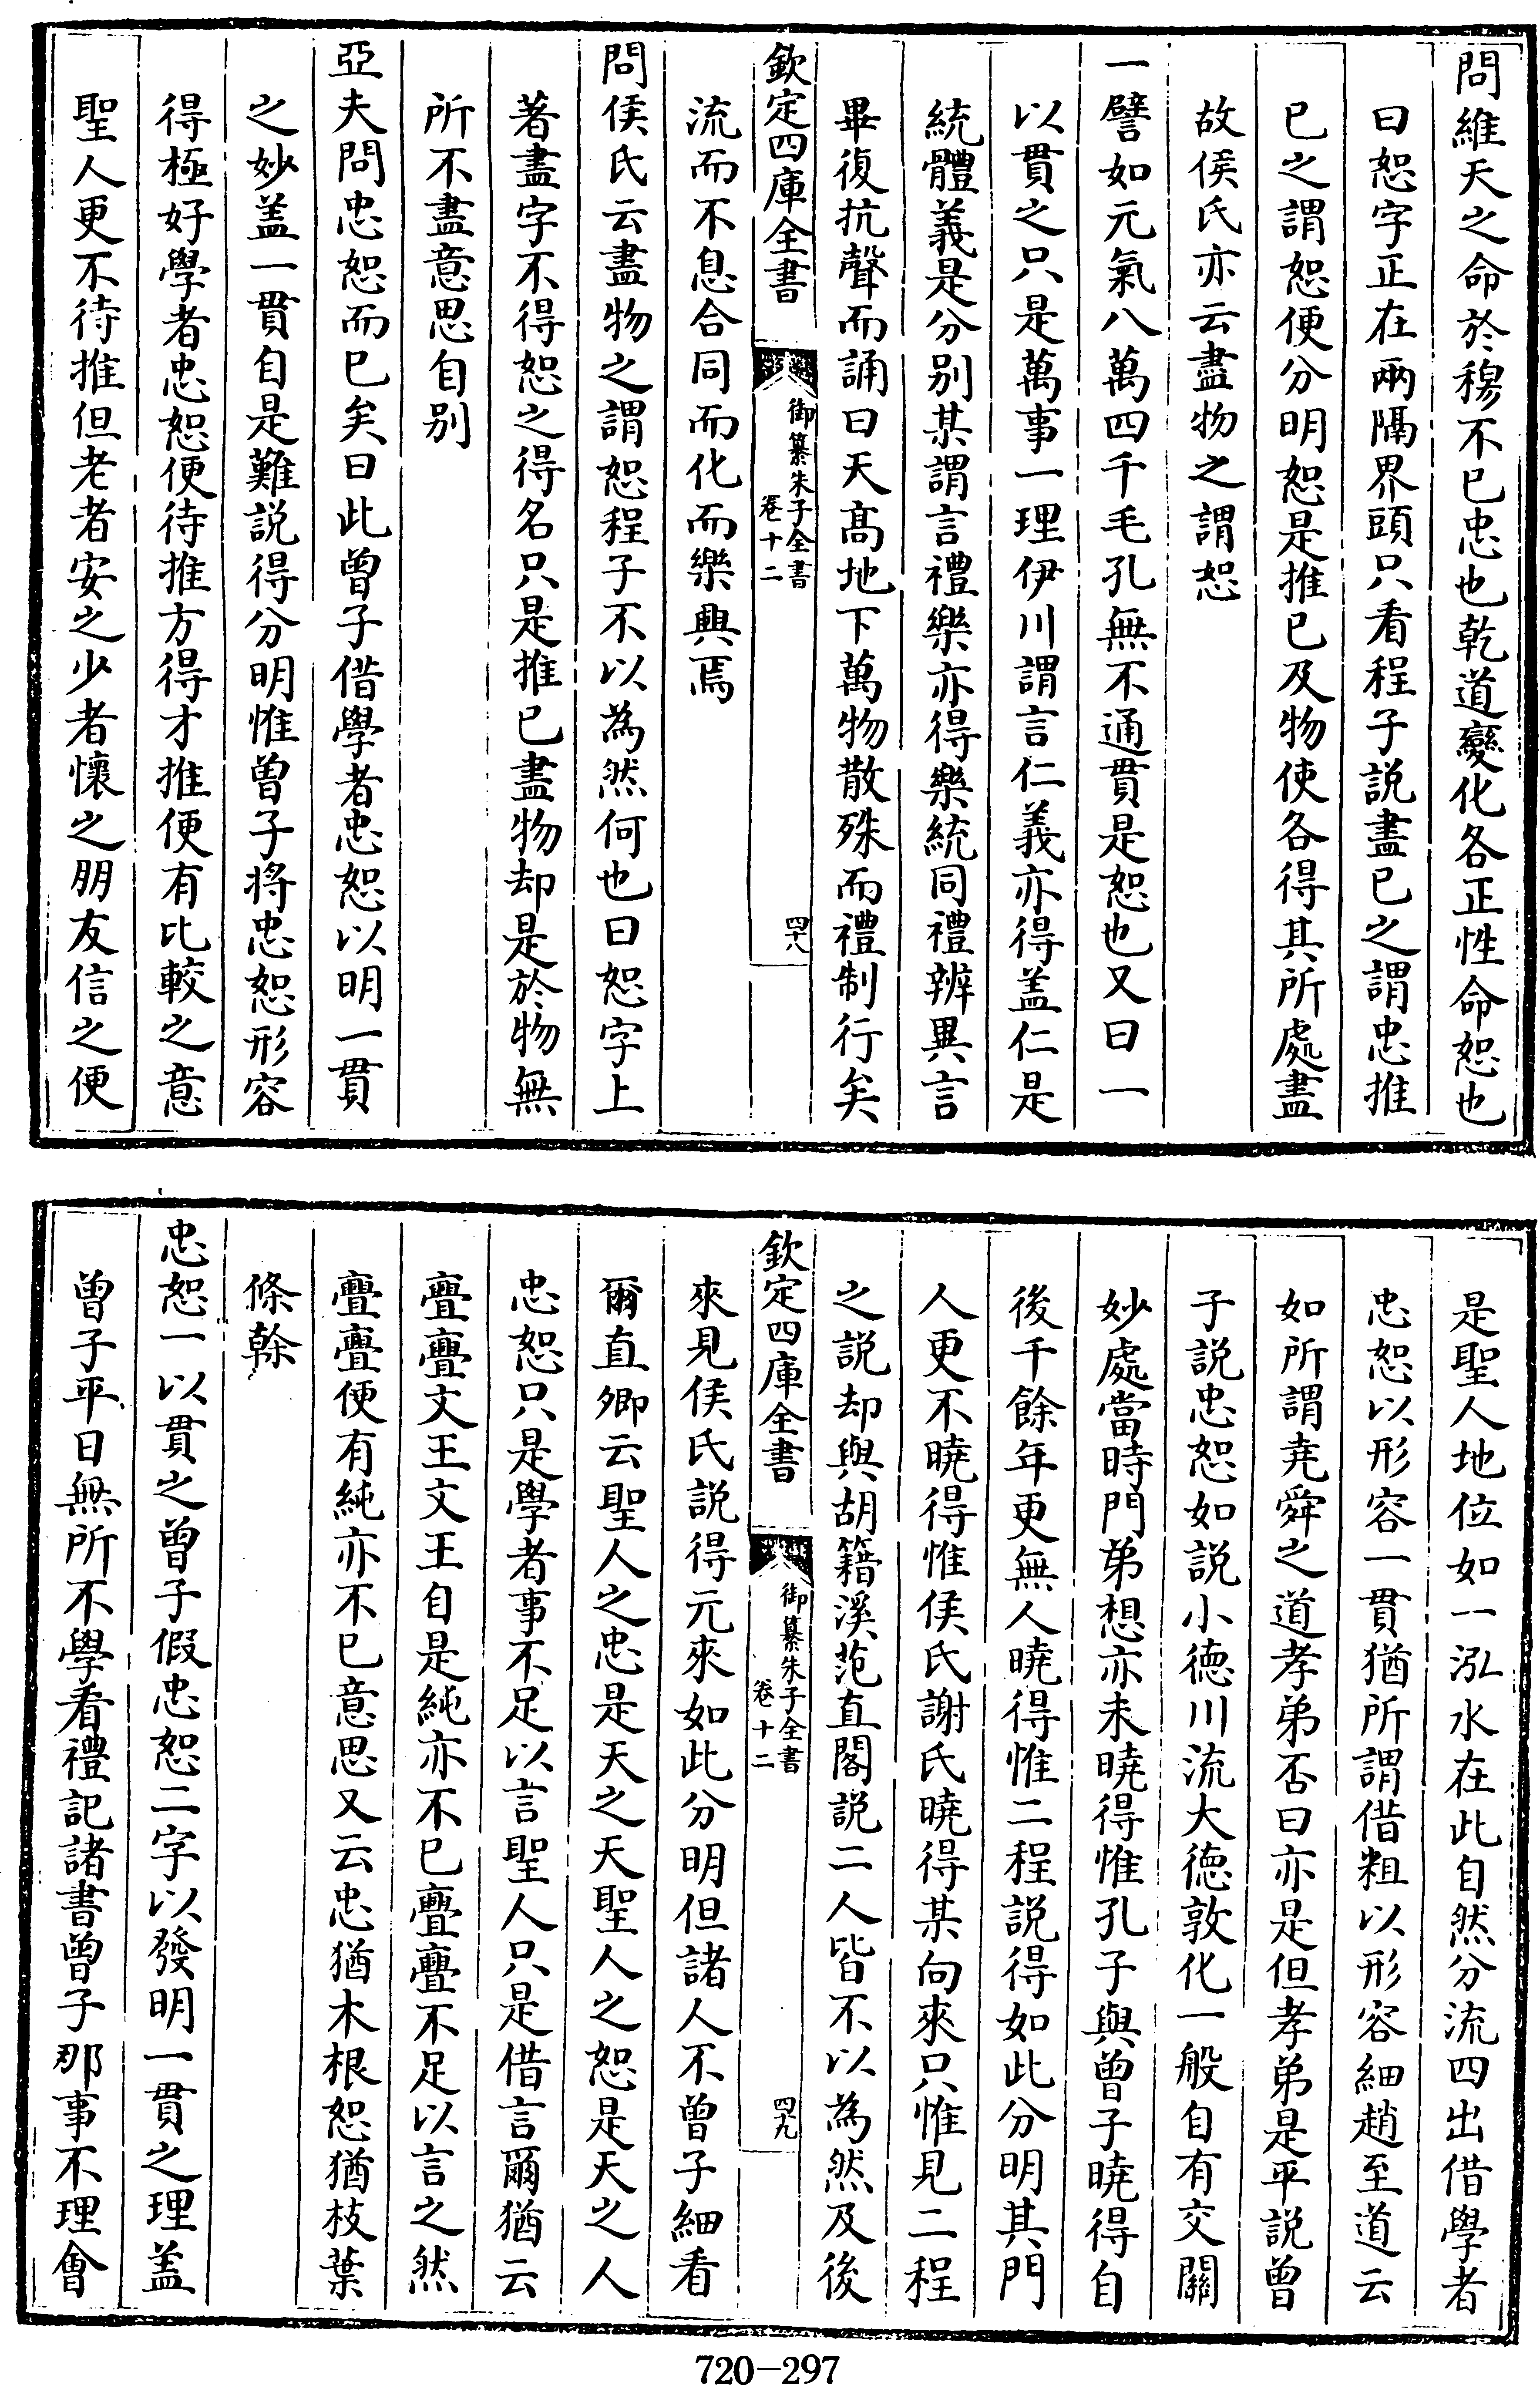 問維天之命於穆不已忠也乾道變化各正性命恕也
曰恕字正在兩隔界頭只看程子説盡已之謂忠推
已之謂恕便分明恕是推已及物使各得其所處盡
故侯氏亦云盡物之謂恕
一譬如元氣八萬四千毛孔無不通貫是恕也又曰一
以貫之只是萬事一理伊川謂言仁義亦得盖仁是
統體義是分别某謂言禮樂亦得樂統同禮辨異言
畢復抗聲而誦曰天髙地下萬物散殊而禮制行矣
欽定四庫全書
御纂朱子全書
卷十二
四八
流而不息合同而化而樂興焉
問侯氏云盡物之謂恕程子不以為然何也曰恕字上
著盡字不得恕之得名只是推已盡物却是於物無
所不盡意思自别
亞夫問忠恕而已矣曰此曾子借學者忠恕以明一貫
之妙盖一貫自是難説得分明惟曾子将忠恕形容
得極好學者忠恕便待推方得才推便有比較之意
聖人更不待推但老者安之少者懷之朋友信之便
是聖人地位如一泓水在此自然分流四出借學者
忠恕以形容一貫猶所謂借粗以形容細趙至道云
如所謂堯舜之道孝弟否曰亦是但孝弟是平説曾
子説忠恕如説小德川流大德敦化一般自有交關
妙處當時門弟想亦未曉得惟孔子與曾子曉得自
後千餘年更無人曉得惟二程説得如此分明其門
人更不曉得惟侯氏謝氏曉得某向來只惟見二程
之説却與胡籍溪范直閣説二人皆不以為然及後
欽定四庫全書
御纂朱子全書
卷十二
四九
來見侯氏説得元來如此分明但諸人不曾子細看
爾直卿云聖人之忠是天之天聖人之恕是天之人
忠恕只是學者事不足以言聖人只是借言爾猶云
亹亹文王文王自是純亦不已亹亹不足以言之然
亹亹便有純亦不已意思又云忠猶木根恕猶枝葉
條榦
忠恕一以貫之曾子假忠恕二字以發明一貫之理盖
曾子平日無所不學看禮記諸書曾子那事不理會
720-297